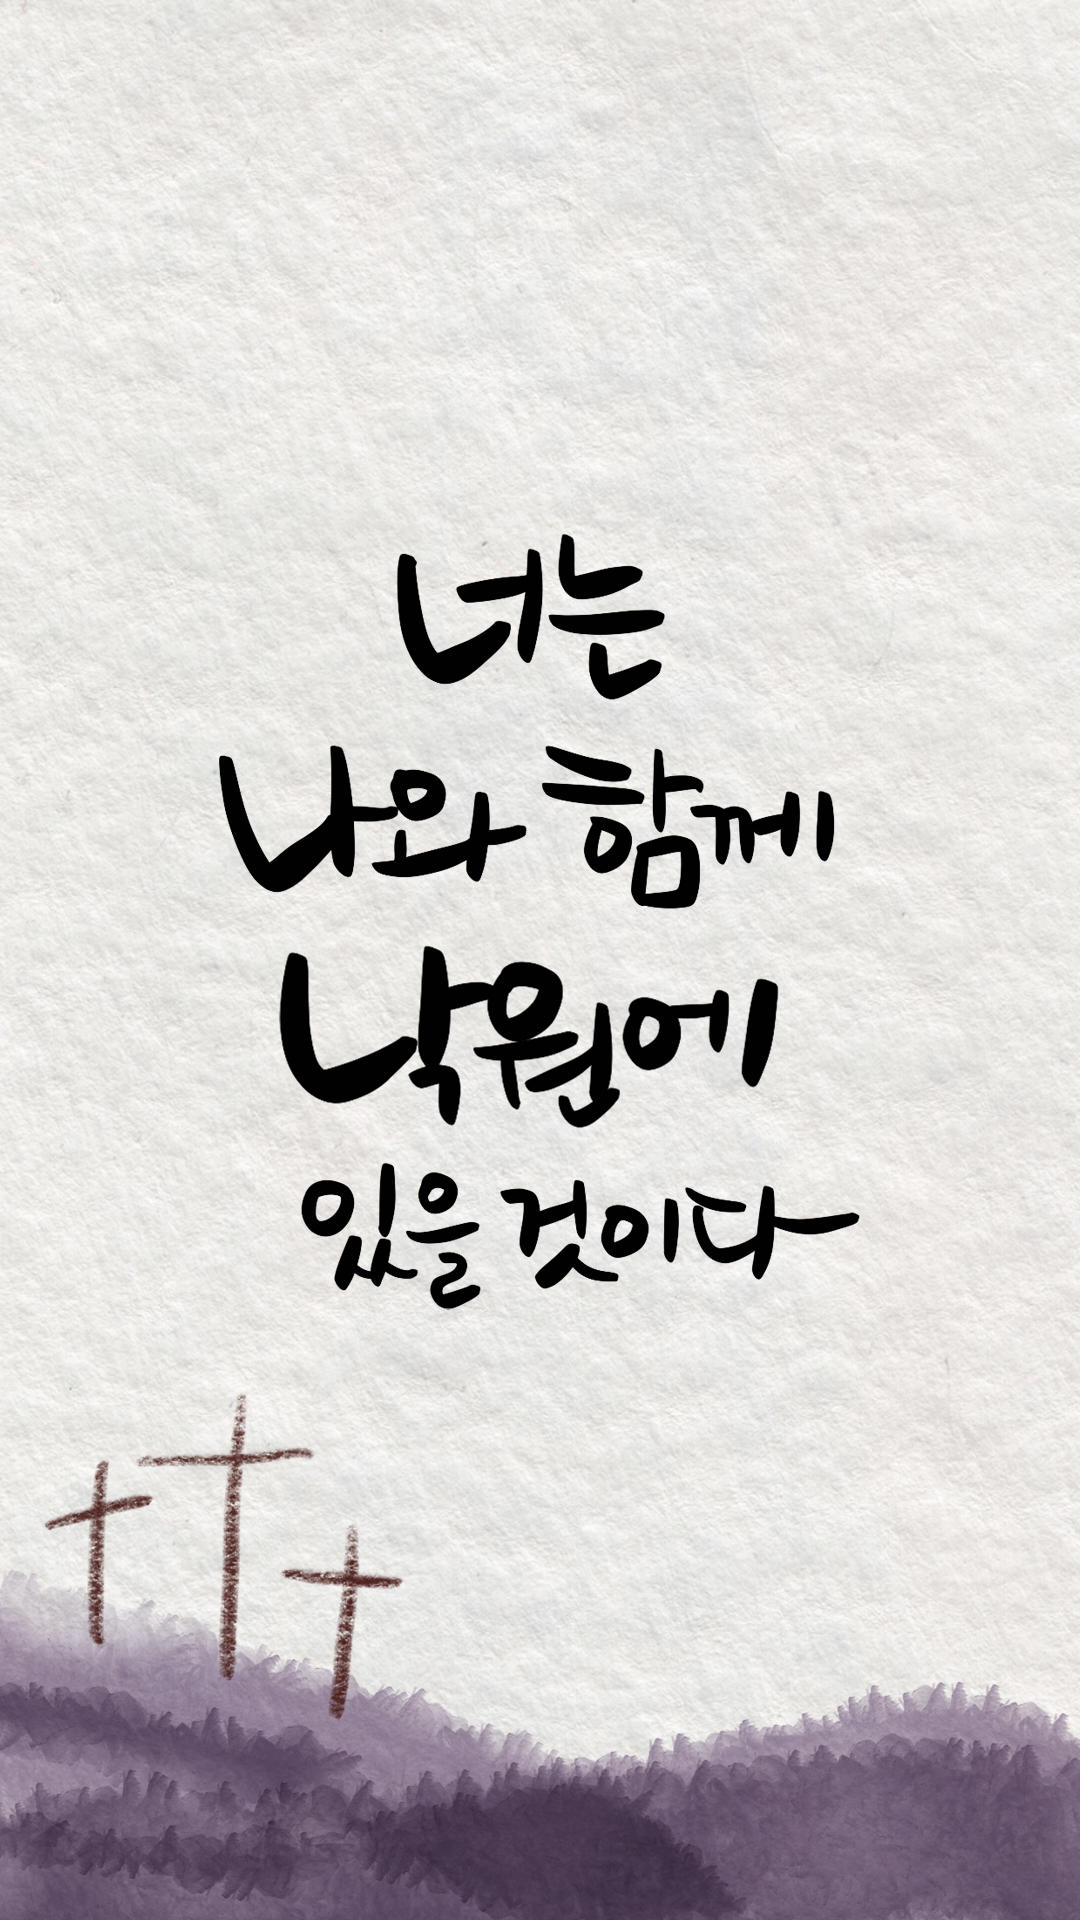 너는
나와 함께
낙원에
있을 것이다